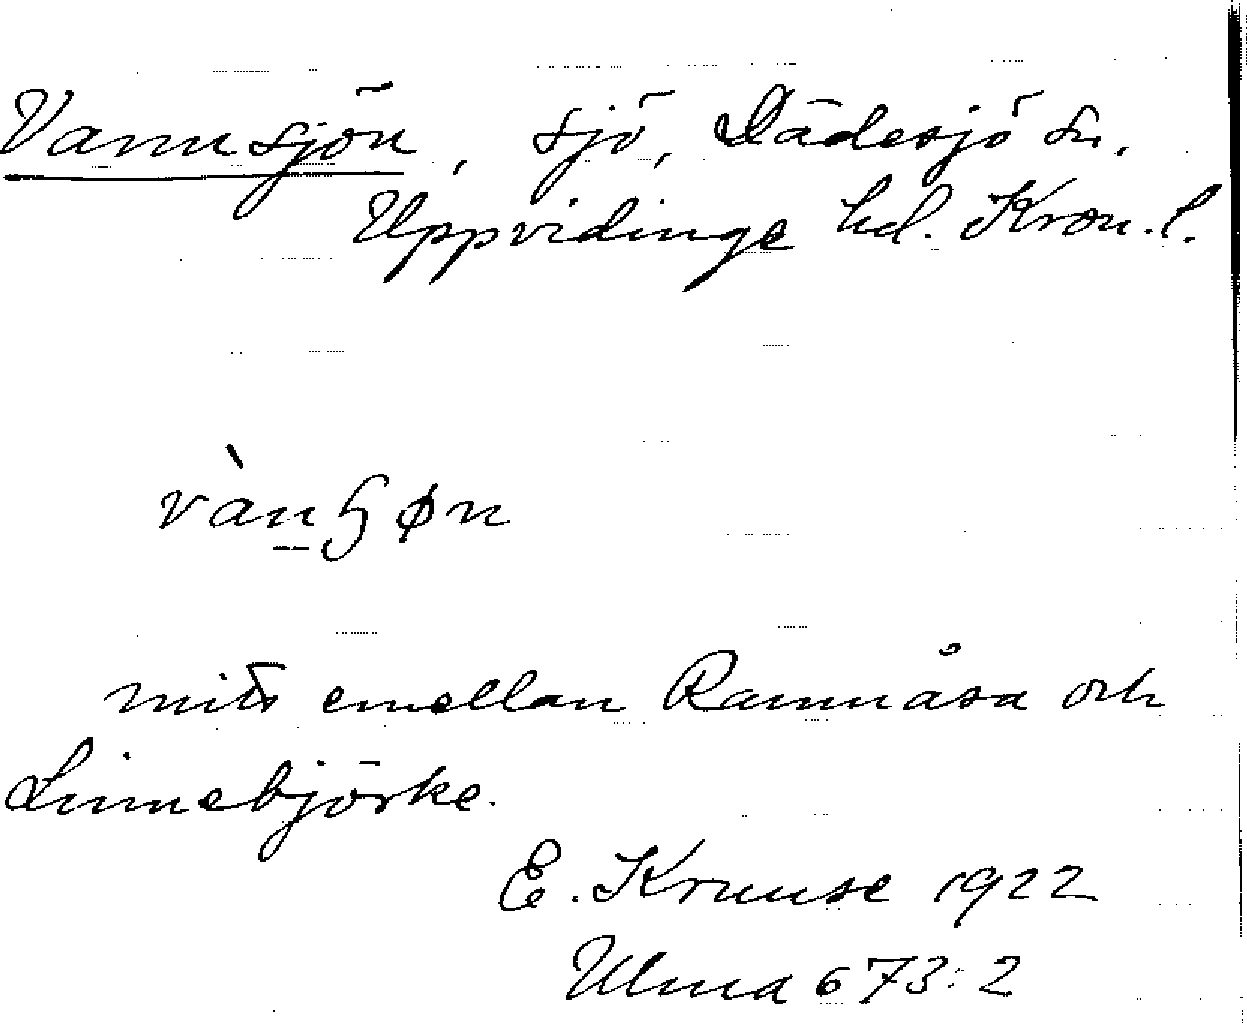 Vannsjön, sjö, Dädesjö sn.
Uppvidinge hd. Kron. l.
vàn̲ɧøn
mitt emellan Rannåsa och
Linnebjörke.
E. Kruuse 1922
Ulma 673:2